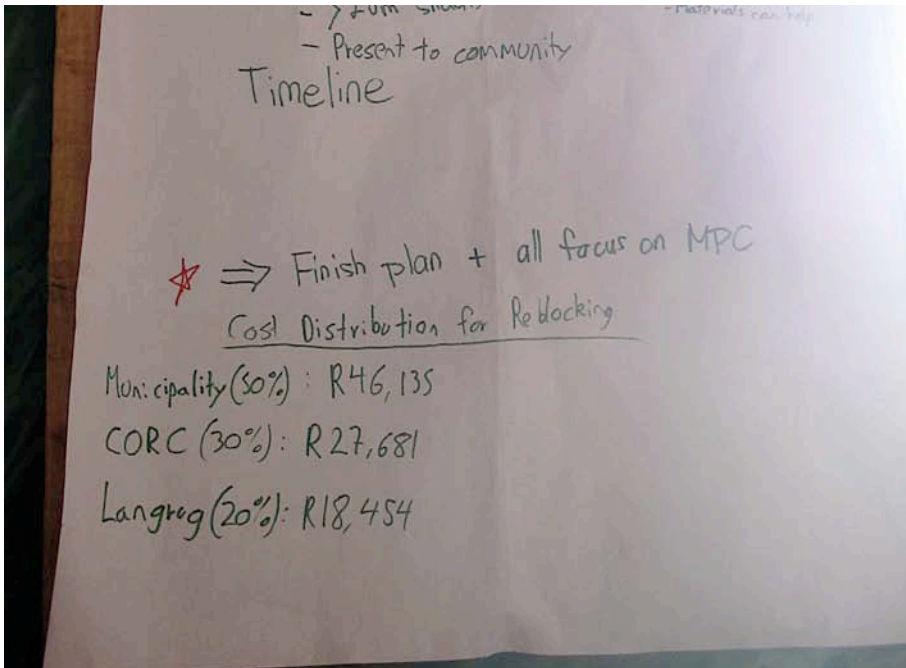 - Materials can help
- Present to community
Timeline
⇒ Finish plan + all focus on MPC
Cost Distribution for Reblocking
Municipality (50%) : R46,135
CORC (30%): R27,681
Langrug (20%): R18,454